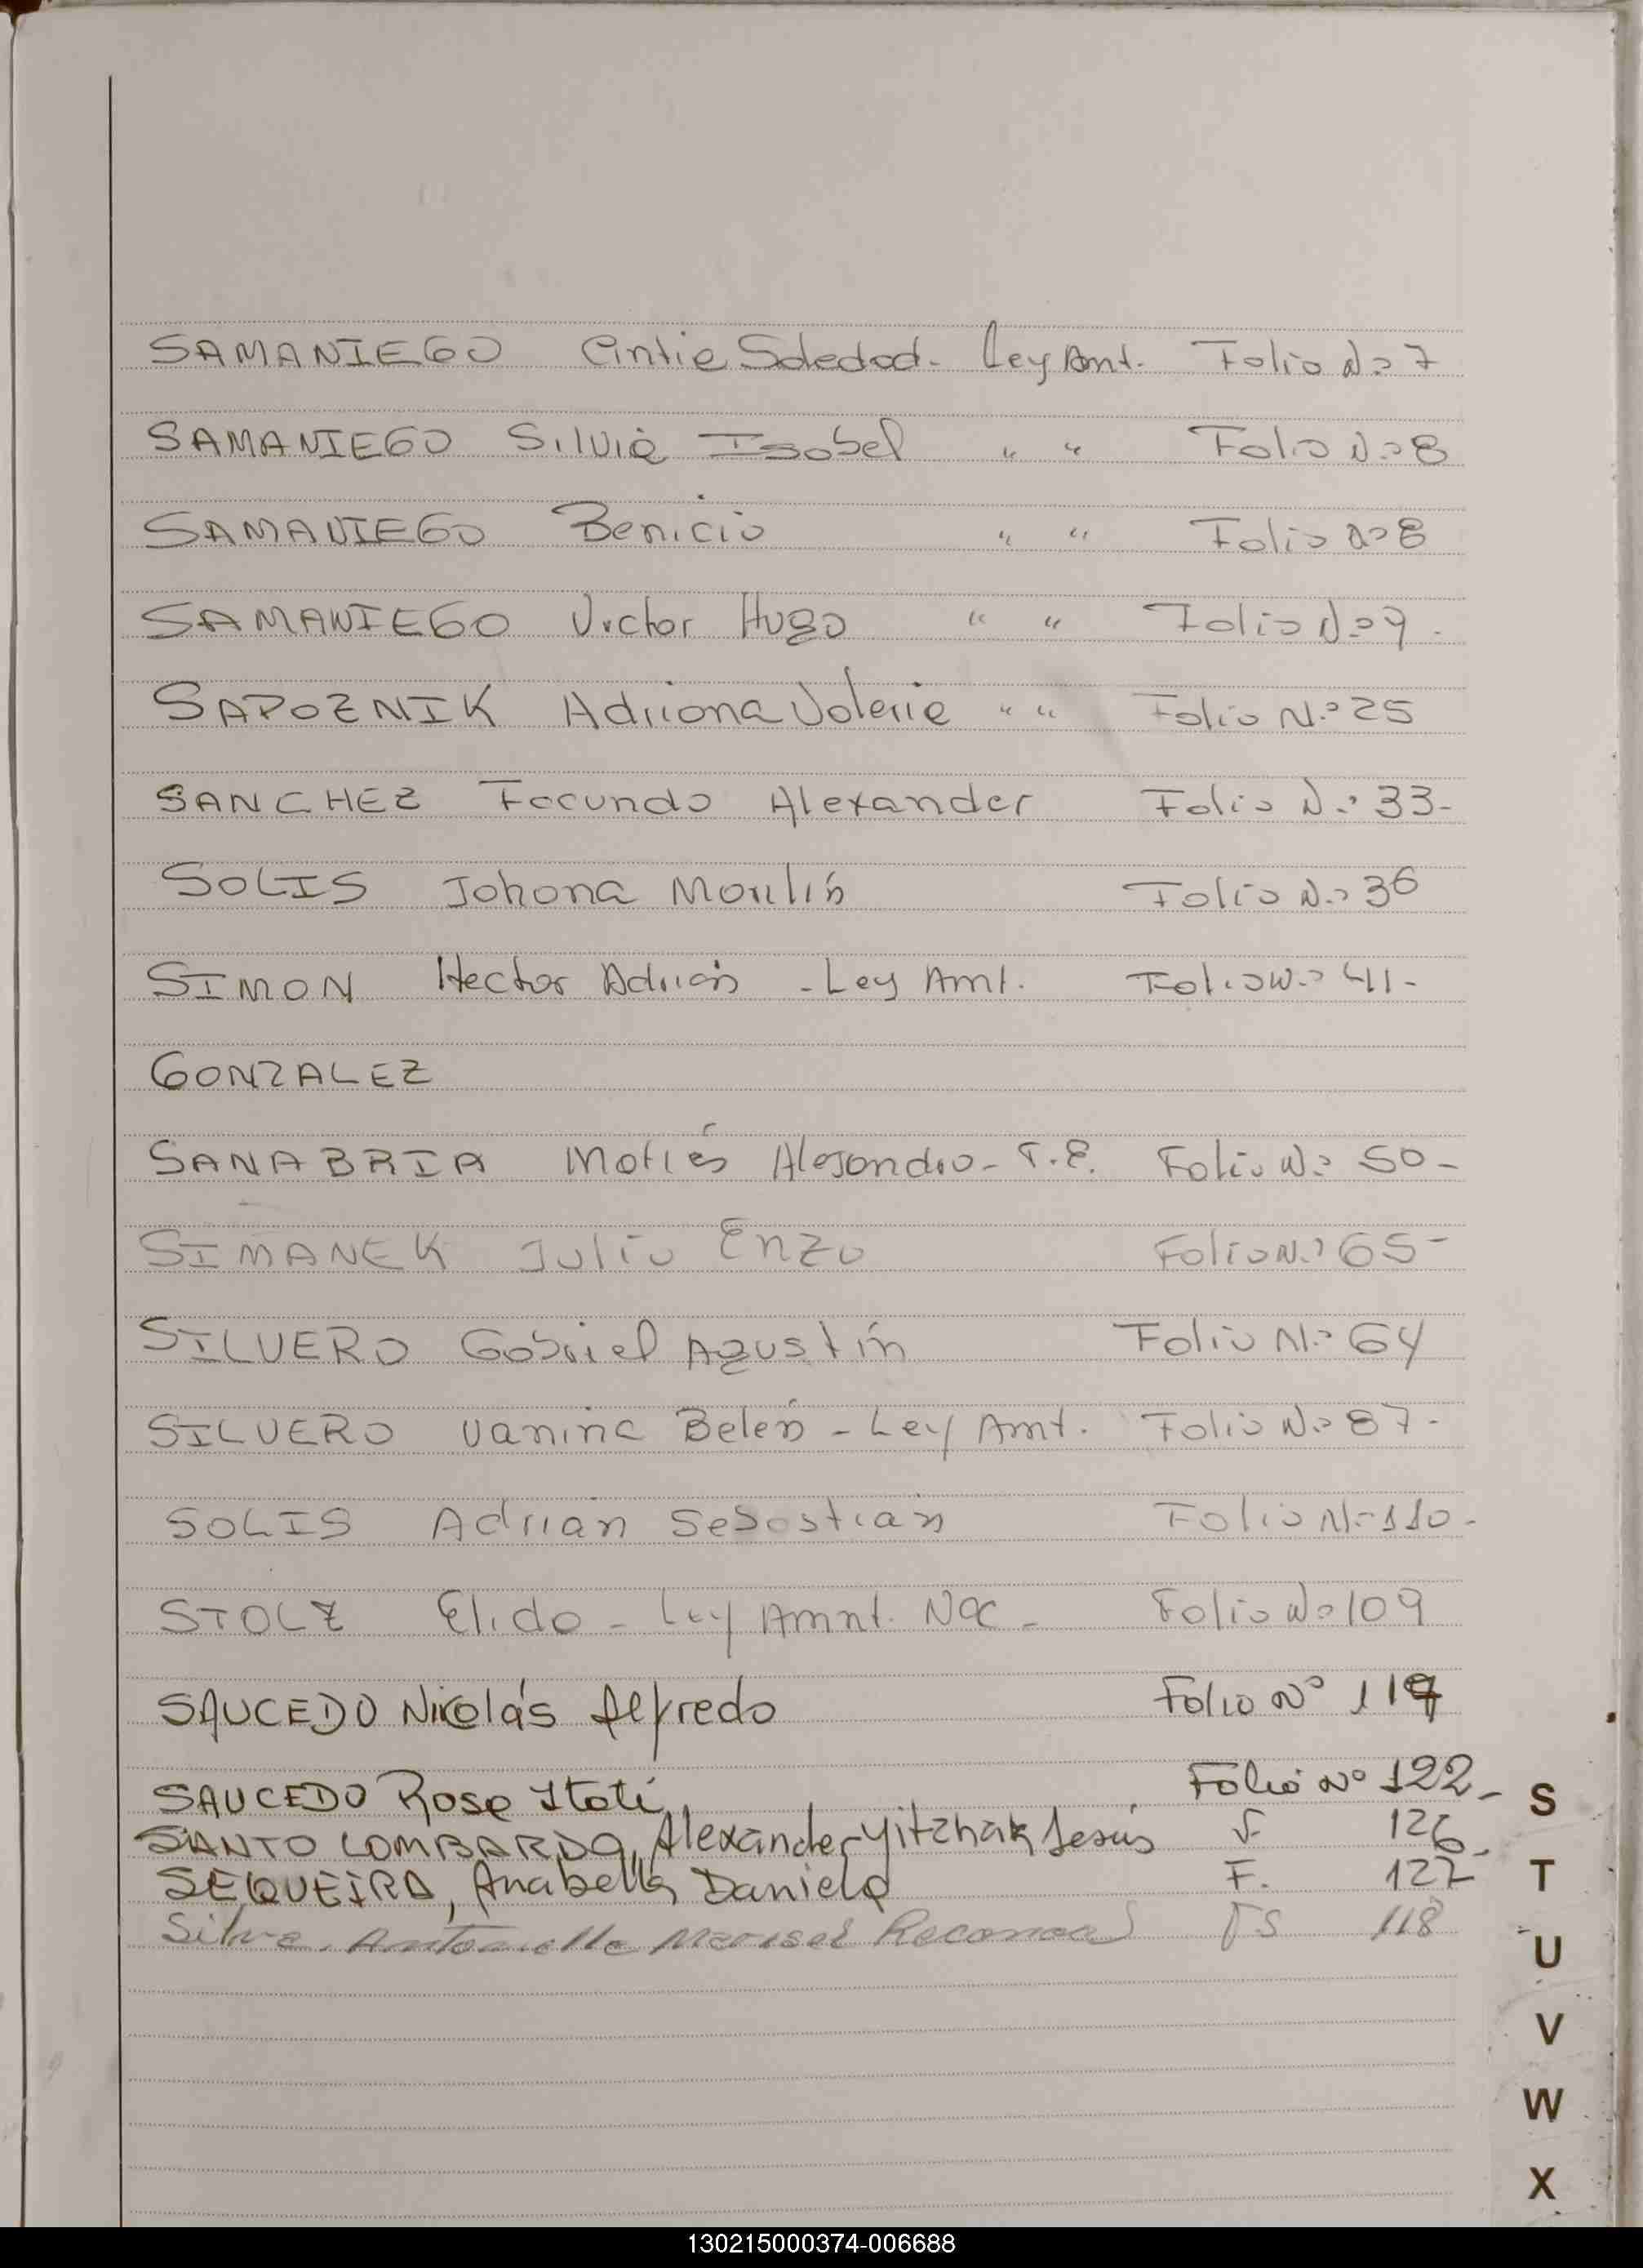 SAMANIEGO Cintia Soledad - Ley Amt. Folio Nº 7
SAMANIEGO Silvia Isabel " " Folio Nº 8
SAMANIEGO Benicio " " Folio Nº 8
SAMANIEGO Victor Hugo " " Folio Nº 9.
SAPOZNIK Adriana Valeria " " Folio Nº 25
SANCHEZ Facundo Alexander Folio Nº 33-
SOLIS Johana Marilin Folio Nº 36
SIMON Hector Adrian - Ley Amt. Folio Nº 41-
GONZALEZ
SANABRIA Matías Alejandro - T.E. Folio Nº 50-
SIMANEK Julio Enzo Folio Nº 65-
SILVERO Gabriel Agustín Folio Nº 64
SILVERO Vanina Belén - Ley Amt. Folio Nº 87-
SOLIS Adrian Sebastian Folio Nº 110-
STOLZ Elido - Ley Amnt. Nac - Folio Nº 109
SAUCEDO Nicolás Alfredo Folio Nº
SAUCEDO Rosa Itatí Folio Nº 122-
SANTO LOMBARDO, Alexander Yitzhak Jesús F. 126-
SEQUEIRA, Anabella Daniela F. 127
Silva, Antonella Marisel FS 118
S
T
U
V
W
X
130215000374-006688